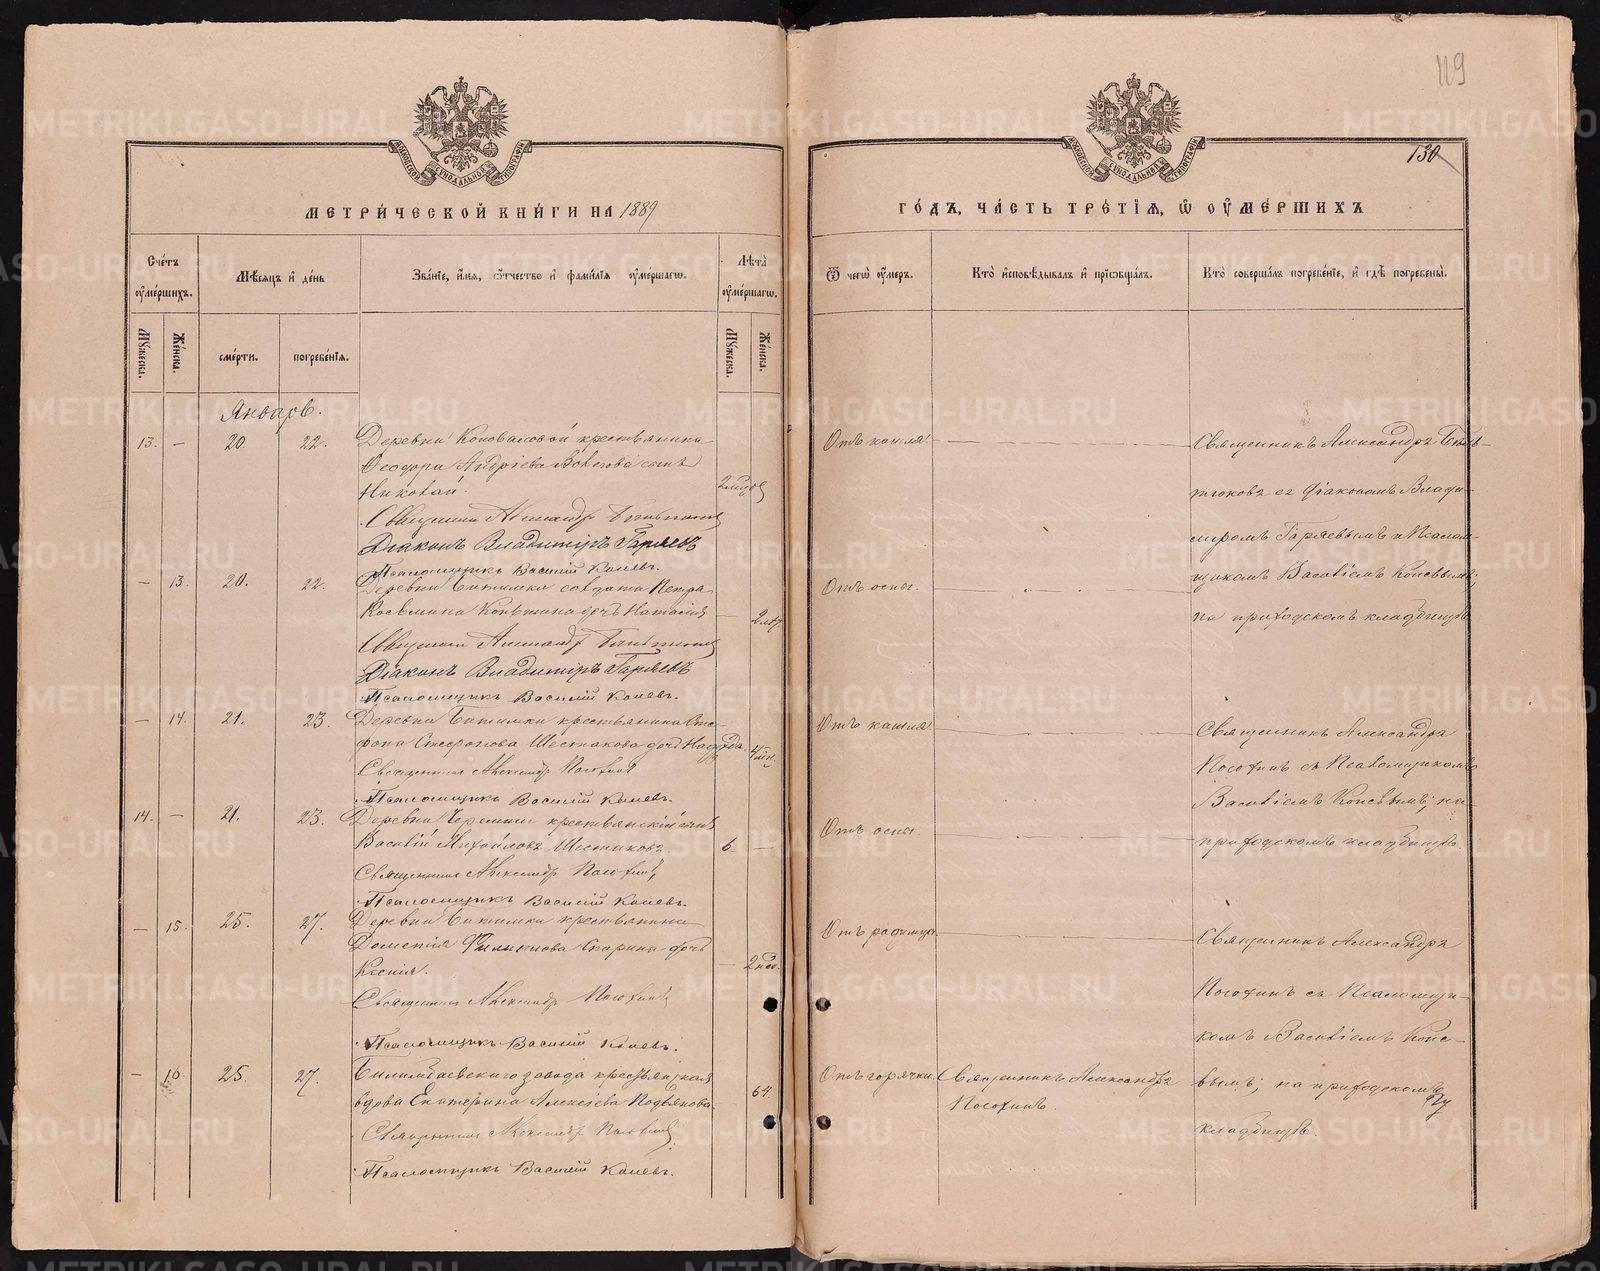 119
130
МЕТРИ́ЧЕСКОЙ КНИ́ГИ НА 1889
ГО́ДЪ, ЧА́СТЬ ТРЕ́ТІЯ, Ѡ҆ ОУ҆МЕ́РШИХЪ
Сче́тъ оу҆ме́ршихъ.
Мѣ́сяцъ и҆ де́нь
Зва́ніе, и҆́мя, ѻ҆́тчество и҆ фами́лія оу҆ме́ршагѡ.
Лѣ́та оу҆ме́ршагѡ.
Ѿ чегѡ̀ оу҆́меръ.
Кто̀ и҆сповѣ́дывалъ и҆ прїѡбща́лъ.
Кто̀ соверша́лъ погребе́ніе, и҆ гдѣ̀ погребены̀.
Мꙋ́жеска.
Же́нска.
сме́рти.
погребе́нія.
Мꙋ́жеска.
Же́нска.
Январь.
13. — 20. 22. Деревни Коноваловой крестьянина
Ѳеодора Андріева сынъ
Николай. 2 мцов
Священникъ Александр
Діаконъ Владиміръ Гаряевъ
Псаломщикъ Василій Конев.
Отъ кашля
Священникъ Александръ
съ Діакономъ Влади-
миромъ Гаряевымъ и Псалом-
щикомъ Василіемъ Коневымъ;
на приходскомъ кладбищѣ
— 13. 20. 22. Деревни Битимки солдата Петра
Косьмина дочь Наталія — 2 лѣт
Священник Александр
Діаконъ Владиміръ Гаряевъ
Псаломщикъ Василій Конев.
Отъ оспы.
— 14. 21. 23. Деревни Битимки крестьянина Сте-
фана Шестакова дочь Надежда. 4
Священник Александр Посохин
Псаломщикъ Василій Конев.
Отъ кашля
Священникъ Александръ
Посохинъ съ Псаломщикомъ
Василіемъ Коневымъ; на
приходскомъ кладбищѣ.
14. — 21. 23. Деревни крестьянскій сынъ
Василій Михайловъ Шестаковъ 6 —
Священник Александр Посохин
Псаломщикъ Василій Конев.
Отъ оспы.
— 15. 25. 27. Деревни Битимки крестьянина
Дометія Филиппова дочь
Ксенія. — 2 нед.
Священник Александр Посохин
Псаломщикъ Василій Конев.
Отъ родимца
Священникъ Александръ
Посохинъ съ Псаломщи-
комъ Василіемъ Коне-
вымъ; на приходскомъ
кладбищѣ.
— 16. 25. 27. Билимбаевскаго завода крестьянская
вдова Екатерина Алексіева Подвякова. 64.
Священник Александр Посохин
Псаломщикъ Василій Конев.
Отъ горячки.
Священникъ Александръ
Посохинъ.
METRIKI.GASO-URAL.RU